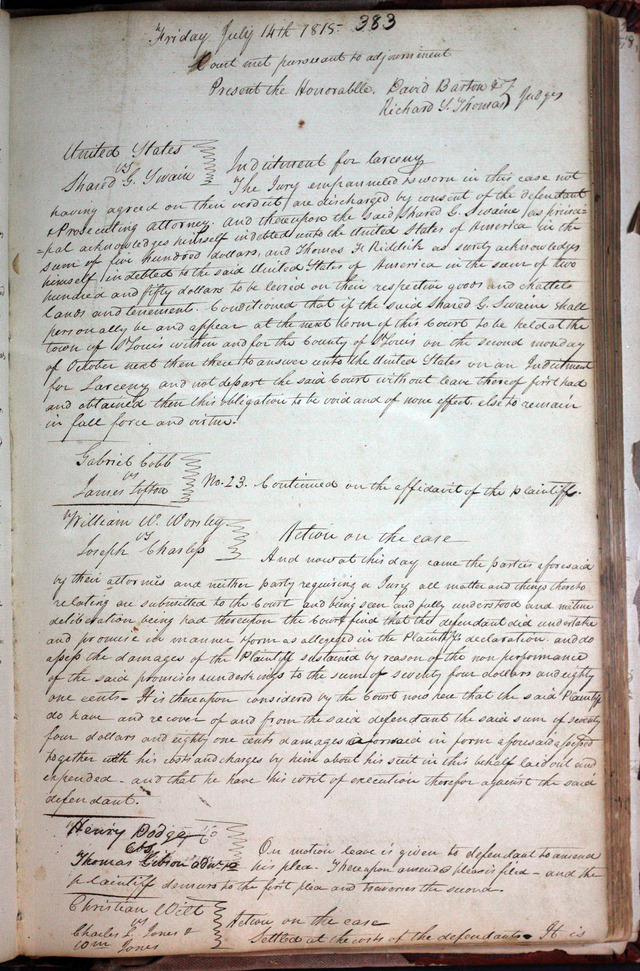 Friday July 14th 1815 383
Court met pursuant to adjournment
Present the Honorable. David Barton &
Richard S. Thomas Judges
United States
vs
Shared G. Swain
Indictment for larceny
The Jury empanneled & sworn in this case not
having agreed on their verdict are discharged by consent of the defendant
& Prosecuting attorney. And thereupon the said Shared G. Swaine (as princi=
=pal acknowledges himself indebted unto the United States of America in the
sum of five hundred dollars, and Thomas F. Riddick as surety acknowledges
himself indebted to the said United States of America in the sum of two
hundred and fifty dollars to be levied on their respective goods and chattels
lands and tenements. Conditioned that if the said Shared G. Swaine shall
personally be and appear at the next term of this Court to be held at the
town of St Louis within and for the County of St Louis on the second monday
of October next then there to answer unto the United States on an Indictment
for Larceny and not depart the said Court without leave thereof first had
and obtained then this obligation to be void and of none effect else to remain
in full force and virtue.
Gabriel Cobb
vs
James Tipton
No. 23. Continued on the affidavit of the plaintiff.
William W. Worsley
vs
Joseph Charless
Action on the case
And now at this day came the parties aforesaid
by their attornies and neither party requiring a Jury all matter and things thereto
relating are submitted to the Court and being seen and fully understood and mature
deliberation being had thereupon the Court find that the defendant did undertake
and promise in manner & form as alleged in the Plaintiff's declaration and do
assess the damages of the Plaintiff sustained by reason of the non performance
of the said promises & undertakings to the sum of seventy four dollars and eighty
one cents - It is thereupon considered by the Court now here that the said Plaintiff
do have and recover of and from the said defendant the said sum of seventy
four dollars and eighty one cents damages aforesaid in form aforesaid assessed
together with his costs and charges by him about his suit in this behalf laid out and
expended - and that he have his writ of execution therefor against the said
defendant.
Henry Dodge
vs
Thomas Gibson
On motion leave is given to defendant to amend
his plea. Thereupon amended pleas is filed - and the
plaintiff demurs to the first plea and traverses the second.
Christian Wilt
vs
Charles L. Jones &
Wm Jones
Action on the case
Settled at the costs of the defendants - It is